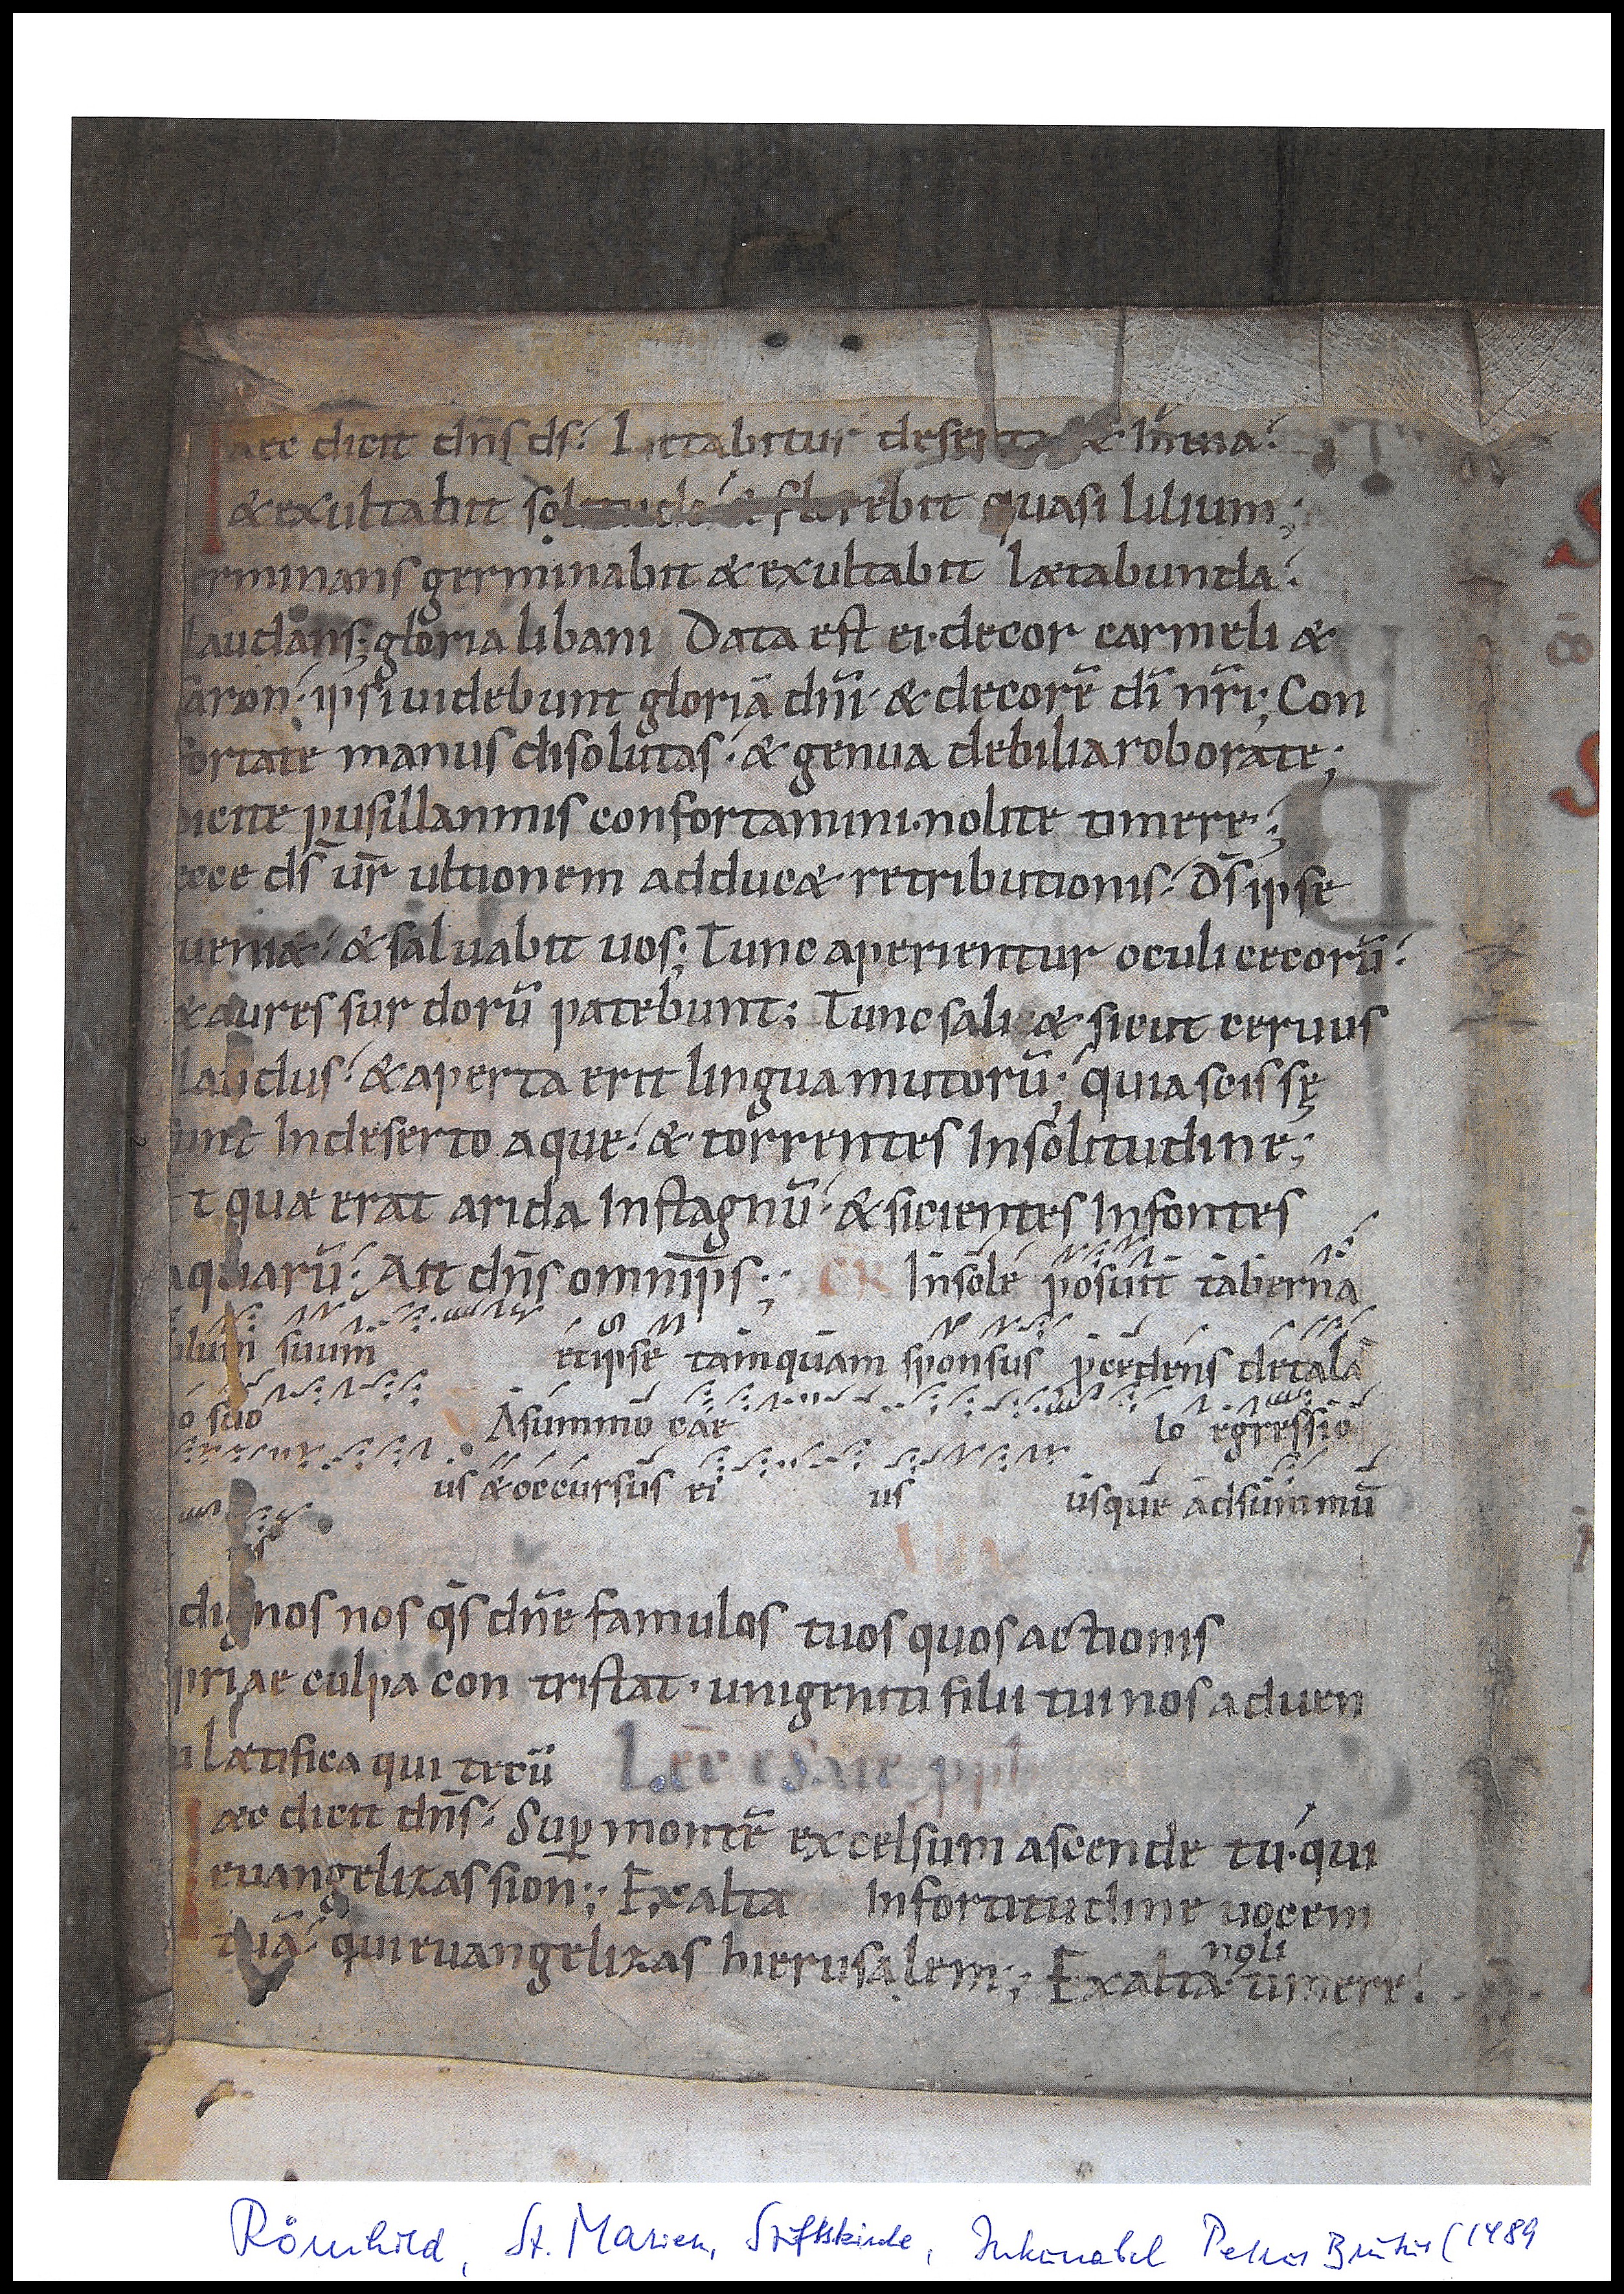 aec dicit dn̄s ds̄. Laetabitur deserta & inuia.
& exultabit solitudo & florebit quasi lilium;
erminans germinabit & exultabit laetabunda.
laudans; gloria libani Data est ei. decor carmeli &
saron. ipsi uidebunt gloriā dn̄i. & decorē dī nr̄i; Con
fortate manus disolutas. & genua debilia roborate;
dicite pusillanimis confortamini. nolite timere;
ecce ds̄ ur̄ ultionem adduc& retributionis. Ds̄ ipse
ueni&. & saluabit uos; Tunc aperientur oculi cecorū.
& aures surdorū patebunt; Tunc sali& sicut ceruus
claudus. & aperta erit lingua mutorū; quia scissę
sunt Indeserto aque. & torrentes Insolitudine;
t quae erat arida Instagnū. & sicientes Infontes
aquarū. Ait dn̄s omnip̄s; GR Insole posuit taberna
culum suum etipse tamquam sponsus p̄cedens detala
o suo Asummo cae lo egressio
us & occursus ei us usque adsummū
us
dignos nos q̄s dn̄e famulos tuos quos actionis
priae culpa contristat. unigeniti filii tui nos aduen
u laetifica qui tecū Lec̄ esaie pph
aec dicit dn̄s. Sup̱ montē excelsum ascende tu. qui
euangelizas sion; Exalta Infortitudine uocem
tuā. qui euangelizas hierusalem; Exalta. noli timere.
S
S
Römhild, St. Marien, Stiftskirche, Inkunabel Petrus Brutus (1489